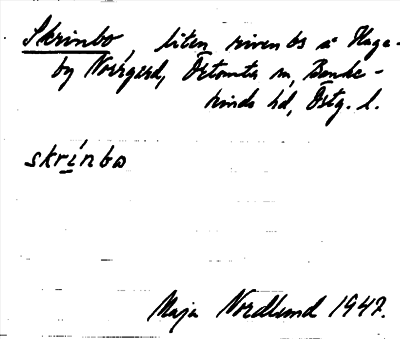 Skrinbo, liten riven bs å Hage-
by Norrgård, Östomta sn, Banke-
kinds hd, Östg. l.
skrinbo
Maja Nordlund 1947.